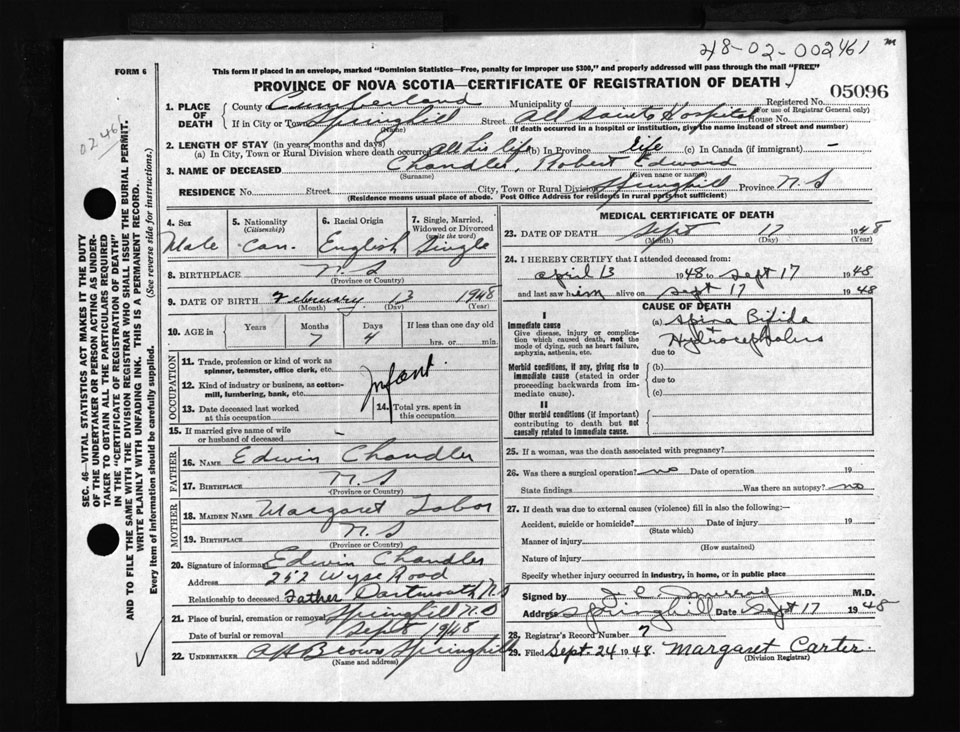 48-02-002461
FORM 6
This form if placed in an envelope, marked "Dominion Statistics—Free, penalty for improper use $300," and properly addressed will pass through the mail "FREE"
PROVINCE OF NOVA SCOTIA—CERTIFICATE OF REGISTRATION OF DEATH
05096
Registered No.
(For use of Registrar General only)
1. PLACE OF DEATH
County of Cumberland Municipality of
If in City or Town Springhill Street All Saints Hospital House No.
(Name) (If death occurred in a hospital or institution, give the name instead of street and number)
2. LENGTH OF STAY (in years, months and days)
(a) In City, Town or Rural Division where death occurred all his life (b) In Province life (c) In Canada (if immigrant) -
3. NAME OF DECEASED Chandler, Robert Edward
(Surname) (Given name or names)
RESIDENCE No. Street City, Town or Rural Division Springhill Province N.S
(Residence means usual place of abode. Post Office Address for residents in rural parts not sufficient)
4. Sex Male
5. Nationality (Citizenship) Can.
6. Racial Origin English
7. Single, Married, Widowed or Divorced (write the word) Single
8. BIRTHPLACE N.S
(Province or Country)
9. DATE OF BIRTH February 13 1948
(Month) (Day) (Year)
10. AGE in Years Months 7 Days 4 If less than one day old hrs. or min.
OCCUPATION
11. Trade, profession or kind of work as spinner, teamster, office clerk, etc.
12. Kind of industry or business, as cotton-mill, lumbering, bank, etc.
Infant
13. Date deceased last worked at this occupation
14. Total yrs. spent in this occupation
15. If married give name of wife or husband of deceased -
FATHER
16. NAME Edwin Chandler
17. BIRTHPLACE N.S
(Province or Country)
MOTHER
18. MAIDEN NAME Margaret Tabor
19. BIRTHPLACE N.S
(Province or Country)
20. Signature of informant Edwin Chandler
Address 252 Wyse Road
Relationship to deceased Father Dartmouth N.S
21. Place of burial, cremation or removal Springhill N.S
Date of burial or removal Sept 1948
22. UNDERTAKER Brown Springhill
(Name and address)
MEDICAL CERTIFICATE OF DEATH
23. DATE OF DEATH Sept 17 1948
(Month) (Day) (Year)
24. I HEREBY CERTIFY that I attended deceased from:
April 13 1948 to Sept 17 1948
and last saw him alive on Sept 17 1948
CAUSE OF DEATH
I
Immediate cause
Give disease, injury or complication which caused death, not the mode of dying, such as heart failure, asphyxia, asthenia, etc.
(a) Spina Bifida
+
due to Hydrocephalus
Morbid conditions, if any, giving rise to immediate cause (stated in order proceeding backwards from immediate cause).
(b)
due to
(c)
II
Other morbid conditions (if important) contributing to death but not causally related to immediate cause.
25. If a woman, was the death associated with pregnancy?
26. Was there a surgical operation? no Date of operation 19
State findings Was there an autopsy? no
27. If death was due to external causes (violence) fill in also the following:—
Accident, suicide or homicide? Date of injury 19
(State which)
Manner of injury
(How sustained)
Nature of injury
Specify whether injury occurred in industry, in home, or in public place
Signed by Murray M.D.
Address Springhill Date Sept 17 1948
28. Registrar's Record Number 7
29. Filed Sept. 24 1948. Margaret Carter.
(Division Registrar)
SEC. 46—VITAL STATISTICS ACT MAKES IT THE DUTY OF THE UNDERTAKER OR PERSON ACTING AS UNDERTAKER TO OBTAIN ALL THE PARTICULARS REQUIRED IN THE "CERTIFICATE OF REGISTRATION OF DEATH" AND TO FILE THE SAME WITH THE DIVISION REGISTRAR WHO SHALL ISSUE THE BURIAL PERMIT.
WRITE PLAINLY WITH UNFADING INK. THIS IS A PERMANENT RECORD.
Every item of information should be carefully supplied. (See reverse side for instructions.)